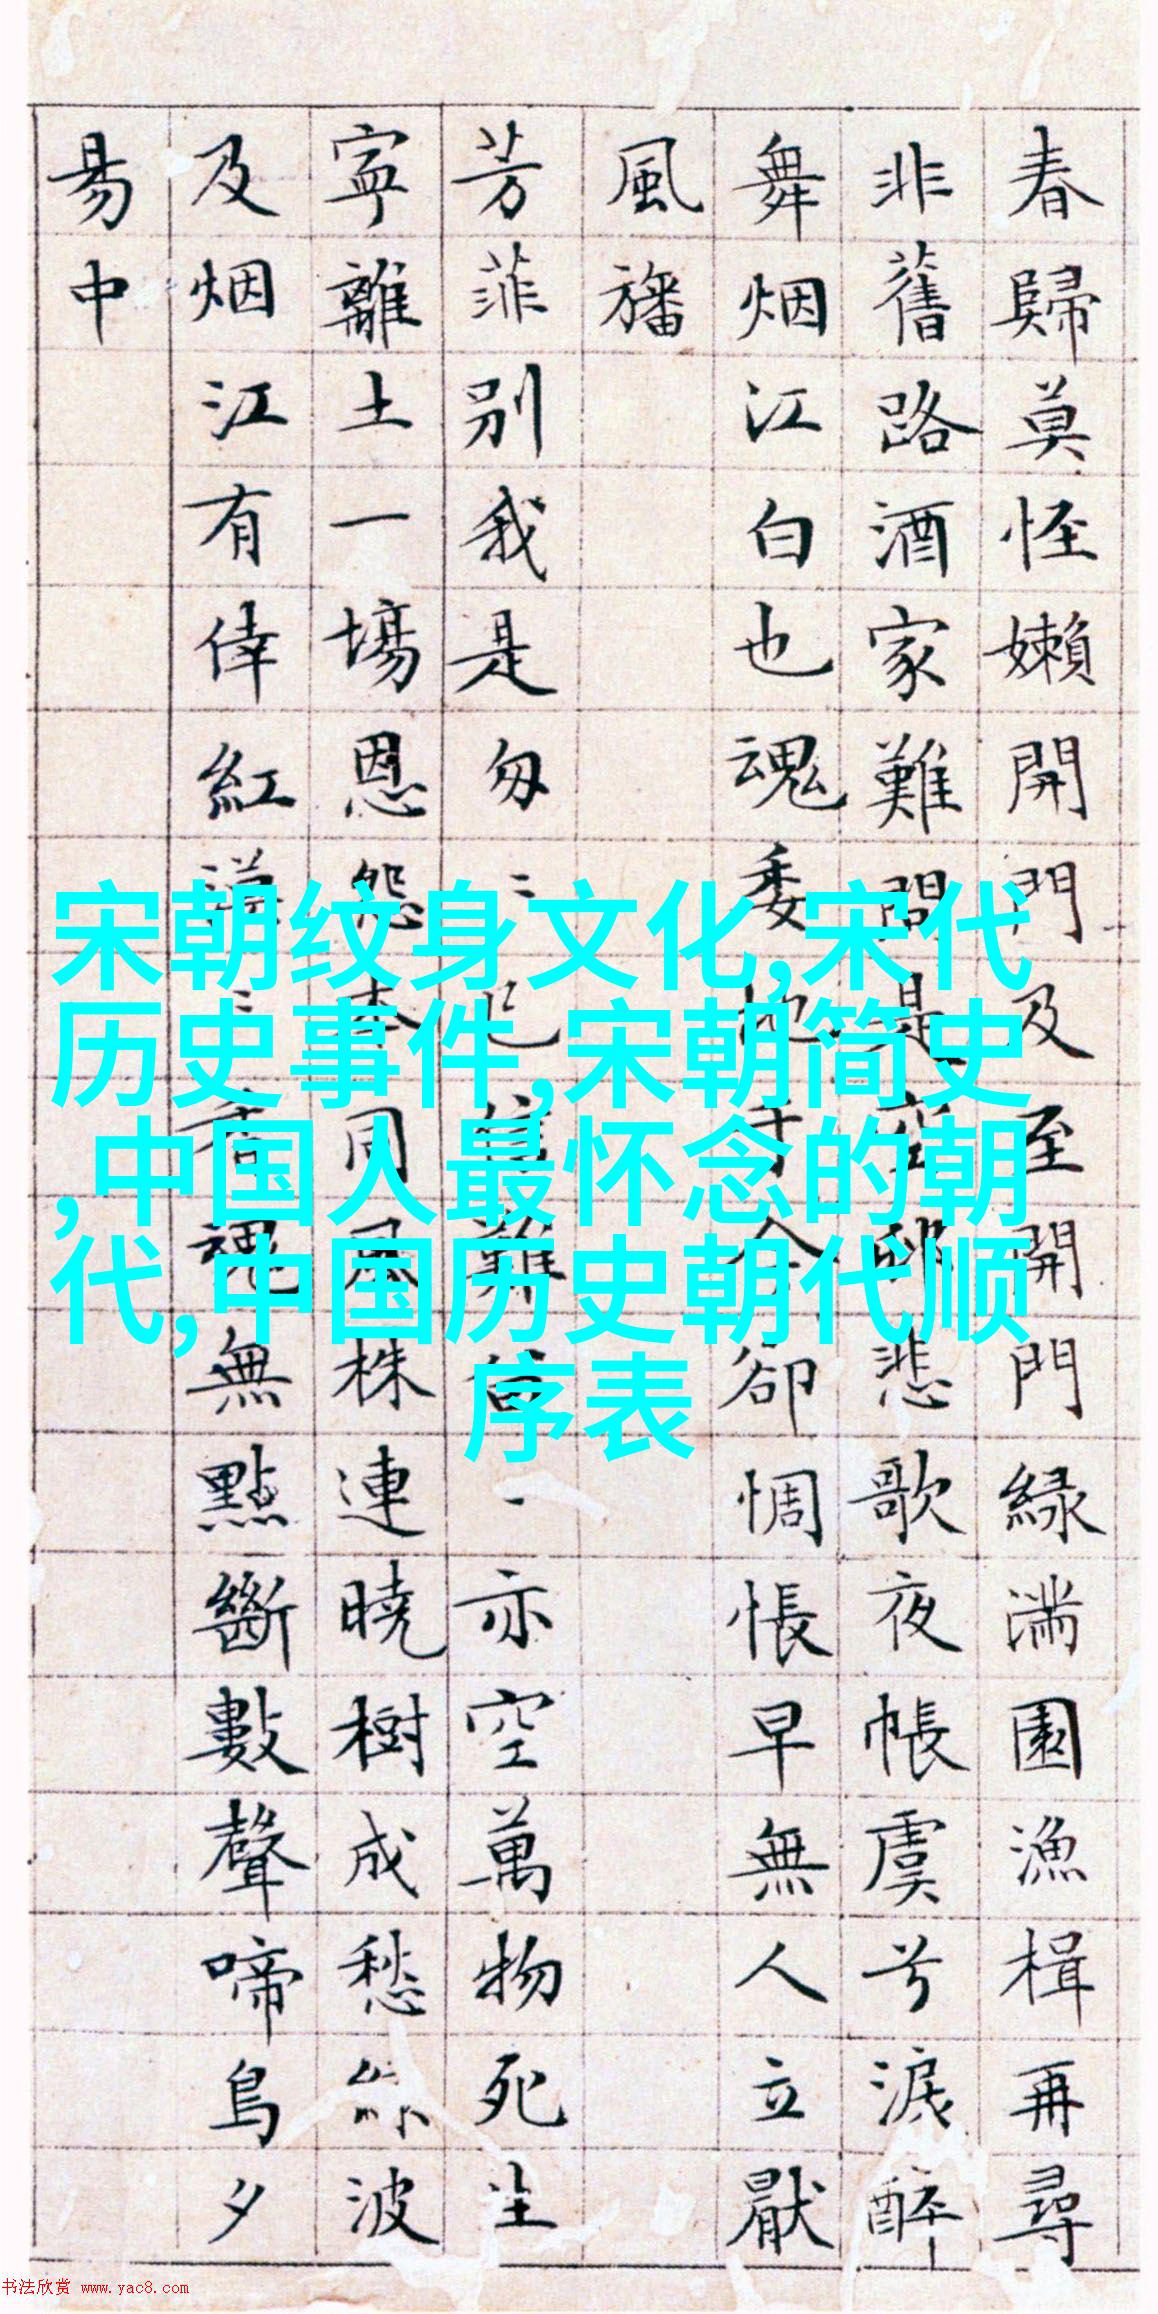 春歸莫怪嬾開門及至開門緑滿園漁楫再尋
非舊路酒家難問是空邨悲歌夜帳虞兮淚醉
舞烟江白也魂委地于今卻惆悵早無人立厭
風旛
芳菲别我是匆〻已信難留一亦空萬物死生
寧離土一場恩怨本同風株連曉樹成愁緑波
及烟江有倖紅漠〻香魂無點斷數聲啼鳥夕
昜中
宋朝纹身文化,宋代
历史事件,宋朝简史
,中国人最怀念的朝
代,中国历史朝代顺
序表
书法欣赏 www.yac8.com